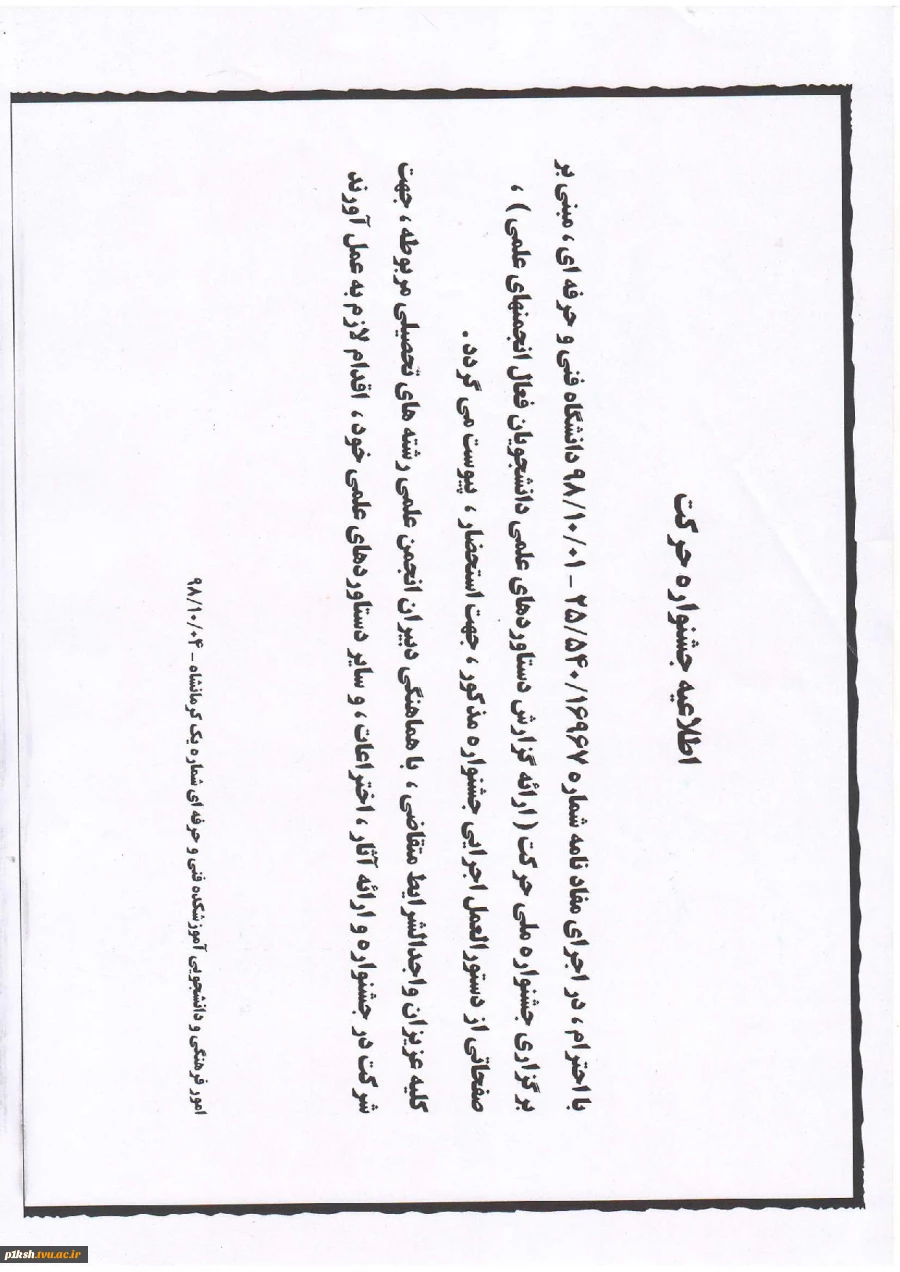 اطلاعیه جشنواره حرکت
با احترام، در اجرای مفاد نامه شماره ۲۵/۵۴۰/۱۶۹۶۷ – ۹۸/۱۰/۰۱ دانشگاه فنی و حرفه ای ، مبنی بر
برگزاری جشنواره ملی حرکت ( ارائه گزارش دستاوردهای علمی دانشجویان فعال انجمنهای علمی ) ،
صفحاتی از دستورالعمل اجرایی جشنواره مذکور ، جهت استحضار ، پیوست می گردد.
کلیه عزیزان واجدالشرایط متقاضی ، با هماهنگی دبیران انجمن علمی رشته های تحصیلی مربوطه ، جهت
شرکت در جشنواره و ارائه آثار ، اختراعات ، و سایر دستاوردهای علمی خود ، اقدام لازم به عمل آورند
امور فرهنگی و دانشجویی آموزشکده فنی و حرفه ای شماره یک کرمانشاه – ۹۸/۱۰/۰۴
p1ksh.tvu.ac.ir